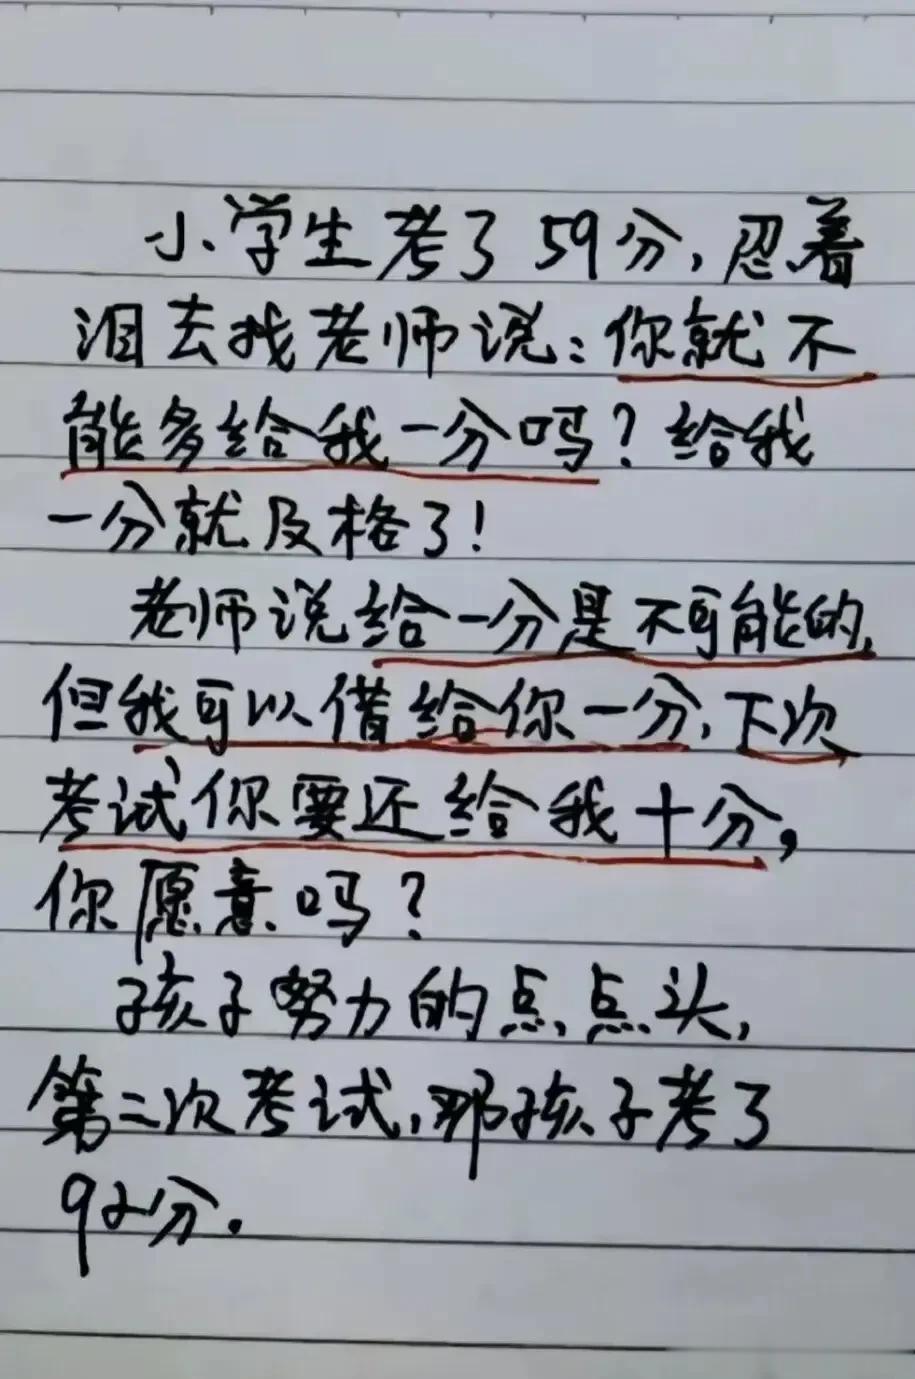 小学生考了59分,忍着
泪去找老师说:你就不
能多给我一分吗?给我
一分就及格了!
老师说给一分是不可能的,
但我可以借给你一分,下次
考试你要还给我十分,
你愿意吗?
孩子努力的点点头,
第二次考试,那孩子考了
92分.